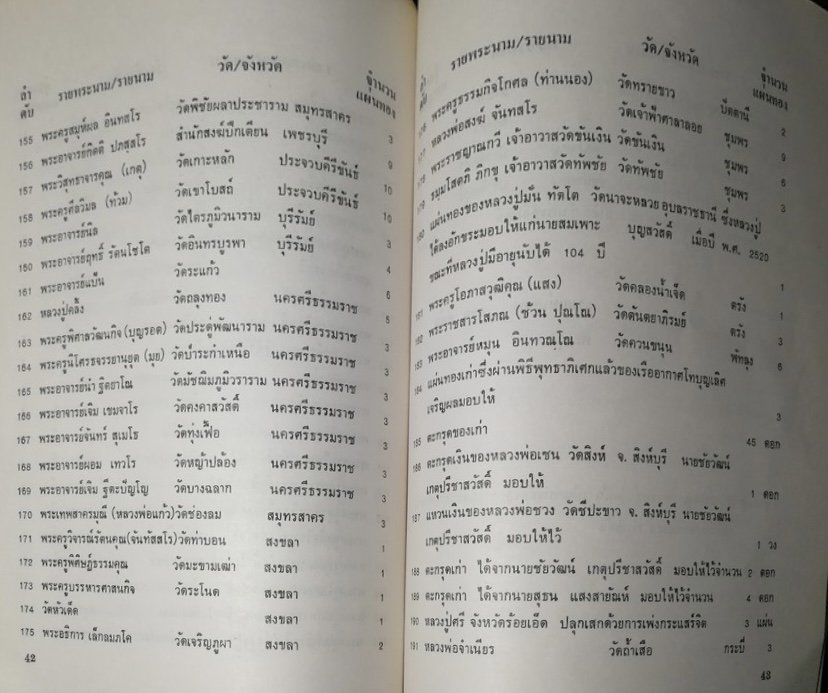 ลำดับ รายพระนาม/รายนาม วัด/จังหวัด จำนวนแผ่นทอง
155 พระครูสมุห์ผล อินทสโร วัดพิชัยผลาประชาราม สมุทรสาคร 3
156 พระอาจารย์กิตติ ปภสฺสโร สำนักสงฆ์บึกเตียน เพชรบุรี 9
157 พระวิสุทธาจารคุณ (เกตุ) วัดเกาะหลัก ประจวบคีรีขันธ์ 10
158 พระครูศีลวิมล (ท้วม) วัดเขาโบสถ์ ประจวบคีรีขันธ์ 10
159 พระอาจารย์นิล วัดไตรภูมิวนาราม บุรีรัมย์ 3
160 พระอาจารย์ฤทธิ์ รัตนโชโต วัดอินทรบูรพา บุรีรัมย์ 4
161 พระอาจารย์แป้น วัดระแก้ว 6
162 หลวงปู่คลิ้ง วัดถลุงทอง นครศรีธรรมราช 5
163 พระครูพิศาลวัฒนกิจ (บุญรอด) วัดประดู่พัฒนาราม นครศรีธรรมราช 3
164 พระครูนิโศรธจรรยานุยุต (มุย) วัดป่าระกำเหนือ นครศรีธรรมราช 3
165 พระอาจารย์นำ ฐิตยาโณ วัดมัชฌิมภูมิวราราม นครศรีธรรมราช 3
166 พระอาจารย์เจิม เขมจาโร วัดคงคาสวัสดิ์ นครศรีธรรมราช 3
167 พระอาจารย์จันทร์ สุเมโธ วัดทุ่งเฟื้อ นครศรีธรรมราช 3
168 พระอาจารย์ผอม เทวโร วัดหญ้าปล้อง นครศรีธรรมราช 3
169 พระอาจารย์เจิม ฐิตะปัญโญ วัดบางฉลาก นครศรีธรรมราช 3
170 พระเทพสาครมุณี (หลวงพ่อแก้ว) วัดช่องลม สมุทรสาคร 3
171 พระครูวิจารณ์รัตนคุณ (จันทัสสโร) วัดท่าบอน สงขลา 1
172 พระครูพิศิษฎ์ธรรมคุณ วัดมะขามเฒ่า สงขลา 1
173 พระครูบรรหารศาสนกิจ วัดระโนด สงขลา 1
174 วัดหัวเด็ด สงขลา 1
175 พระอธิการ เล็กลมภโค วัดเจริญภูผา สงขลา 2
42
ลำดับ รายพระนาม/รายนาม วัด/จังหวัด จำนวนแผ่นทอง
176 พระครูธรรมกิจโกศล (ท่านนอง) วัดทรายขาว ปัตตานี 2
177 หลวงพ่อสงฆ์ จันทสโร วัดเจ้าฟ้าศาลาลอย ชุมพร 9
178 พระราชญาณกวี เจ้าอาวาสวัดขันเงิน วัดขันเงิน ชุมพร 6
179 ธมฺมโสตถิ ภิกขุ เจ้าอาวาสวัดทัพชัย วัดทัพชัย ชุมพร 3
180 แผ่นทองของหลวงปู่มั่น ทัตโต วัดนาจะหลวย อุบลราชธานี ซึ่งหลวงปู่
ได้ลงอักขระมอบให้แก่นายสมเพาะ บุญสวัสดิ์ เมื่อปี พ.ศ. 2520
ขณะที่หลวงปู่มีอายุนับได้ 104 ปี 1
181 พระครูโอภาสวุฒิคุณ (แสง) วัดคลองน้ำเจ็ด ตรัง 1
182 พระราชสารโสภณ (ช้วน ปุณโณ) วัดตันตยาภิรมย์ ตรัง 3
183 พระอาจารย์หมุน อินทวณฺโณ วัดควนขนุน พัทลุง 6
184 แผ่นทองเก่าซึ่งผ่านพิธีพุทธาภิเศกแล้วของเรืออากาศโทบุญเลิศ
เจริญผลมอบให้ 3
185 ตะกรุดของเก่า 45 ดอก
186 ตะกรุดเงินของหลวงพ่อเชน วัดสิงห์ จ. สิงห์บุรี นายชัยวัฒน์
เกตุปรีชาสวัสดิ์ มอบให้ 1 ดอก
187 แหวนเงินของหลวงพ่อซวง วัดชีปะขาว จ. สิงห์บุรี นายชัยวัฒน์
เกตุปรีชาสวัสดิ์ มอบให้ไว้ 1 วง
188 ตะกรุดเก่า ได้จากนายชัยวัฒน์ เกตุปรีชาสวัสดิ์ มอบให้ไว้จำนวน 2 ดอก
189 ตะกรุดเก่า ได้จากนายสุธน แสงสายัณห์ มอบให้ไว้จำนวน 4 ดอก
190 หลวงปู่ศรี จังหวัดร้อยเอ็ด ปลุกเสกด้วยการเพ่งกระแสร์จิต 3 แผ่น
191 หลวงพ่อจำเนียร วัดถ้ำเสือ กระบี่ 3
43